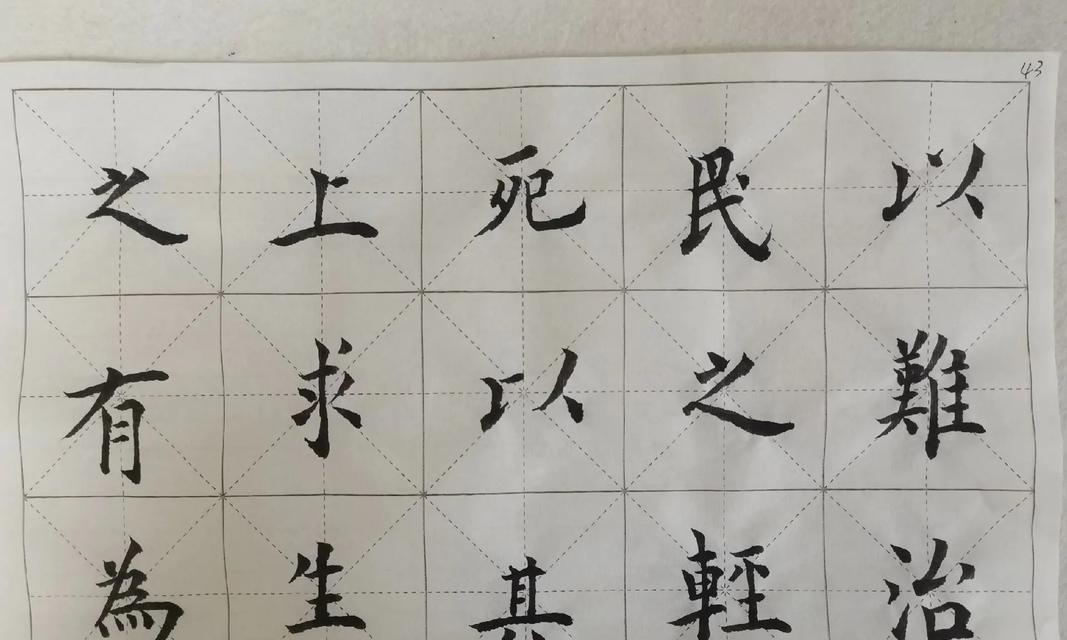 43
以難治
民之輕
死以其
上求生
之有為